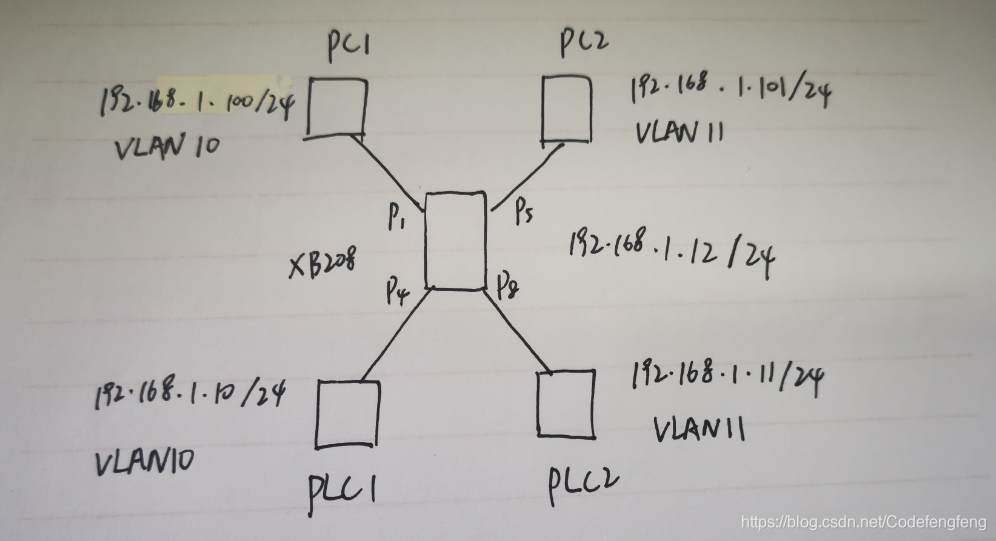 PC1
PC2
192.168.1.100/24
192.168.1.101/24
VLAN 10
VLAN 11
P1
P5
XB208
192.168.1.12/24
P4
P8
192.168.1.10/24
192.168.1.11/24
VLAN10
VLAN11
PLC1
PLC2
https://blog.csdn.net/Codefengfeng